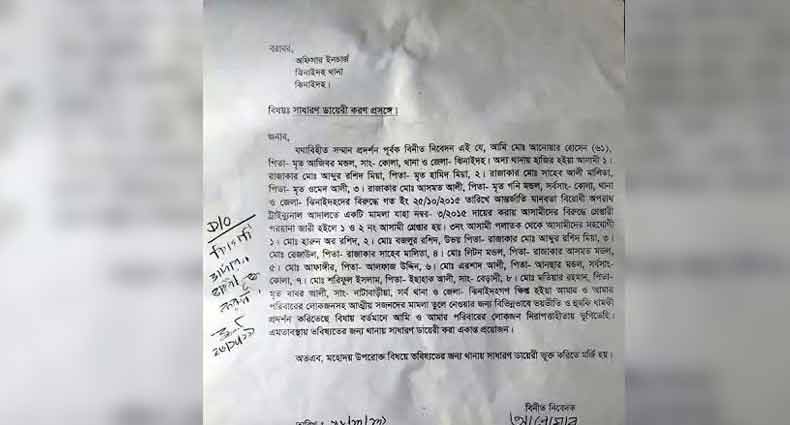 বরাবর,
অফিসার ইনচার্জ
ঝিনাইদহ থানা
ঝিনাইদহ।
বিষয়ঃ সাধারণ ডায়েরী করণ প্রসঙ্গে।
জনাব,
যথাবিহীত সম্মান প্রদর্শন পূর্বক বিনীত নিবেদন এই যে, আমি মোঃ আনোয়ার হোসেন (৬১),
পিতা- মৃত আজিবর মন্ডল, সাং- কোলা, থানা ও জেলা- ঝিনাইদহ। অন্য থানায় হাজির হইয়া আসামী ১।
রাজাকার মোঃ আব্দুর রশিদ মিয়া, পিতা- মৃত হামিদ মিয়া, ২। রাজাকার মোঃ সাহেব আলী মালিতা,
পিতা- মৃত ওমেদ আলী, ৩। রাজাকার মোঃ আসমত আলী, পিতা- মৃত গনি মন্ডল, সর্বসাং- কোলা, থানা
ও জেলা- ঝিনাইদহদের বিরুদ্ধে গত ইং ২৫/১০/২০১৫ তারিখে আন্তর্জাতি মানবতা বিরোধী অপরাধ
ট্রাইব্যুনাল আদালতে একটি মামলা যাহা নম্বর- ৩/২০১৫ দায়ের করায় আসামীদের বিরুদ্ধে গ্রেপ্তারী
পরয়ানা জারী হইলে ১ ও ২ নং আসামী গ্রেপ্তার হয়। ৩নং আসামী পলাতক থেকে আসামীদের সহযোগী
১। মোঃ হারুন অর রশিদ, ২। মোঃ বজলুর রশিদ, উভয় পিতা- রাজাকার মোঃ আব্দুর রশিদ মিয়া, ৩।
মোঃ রেজাউল, পিতা- রাজাকার সাহেব মালিতা, ৪। মোঃ লিটন মন্ডল, পিতা- রাজাকার আসমত মন্ডল,
৫। মোঃ আফাঙ্গীর, পিতা- আলফাজ উদ্দিন, ৬। মোঃ এরশাদ আলী, পিতা- আনছার মন্ডল, সর্বসাং-
কোলা, ৭। মোঃ শরিফুল ইসলাম, পিতা- ইছাহাক আলী, সাং- বেড়াদী, ৮। মোঃ মতিয়ার রহমান, পিতা-
মৃত বাবর আলী, সাং- নাটাবাড়ীয়া, সর্ব থানা ও জেলা- ঝিনাইদহগণ ক্ষিপ্ত হইয়া আমার ও আমার
পরিবারের লোকজনসহ আত্মীয় সজনদের মামলা তুলে নেওয়ার জন্য বিভিন্নভাবে ভয়ভীতি ও হুমকি ধামকী
প্রদর্শন করিতেছে বিধায় বর্তমানে আমি ও আমার পরিবারের লোকজন নিরাপত্তাহীতায় ভুগিতেছি।
এমতাবস্থায় ভবিষ্যতের জন্য থানায় সাধারণ ডায়েরী করা একান্ত প্রয়োজন।
অতএব, মহোদয় উপরোক্ত বিষয়ে ভবিষ্যতের জন্য থানায় সাধারণ ডায়েরী ভুক্ত করিতে মর্জি হয়।
বিনীত নিবেদক
আনোয়ার
D/O